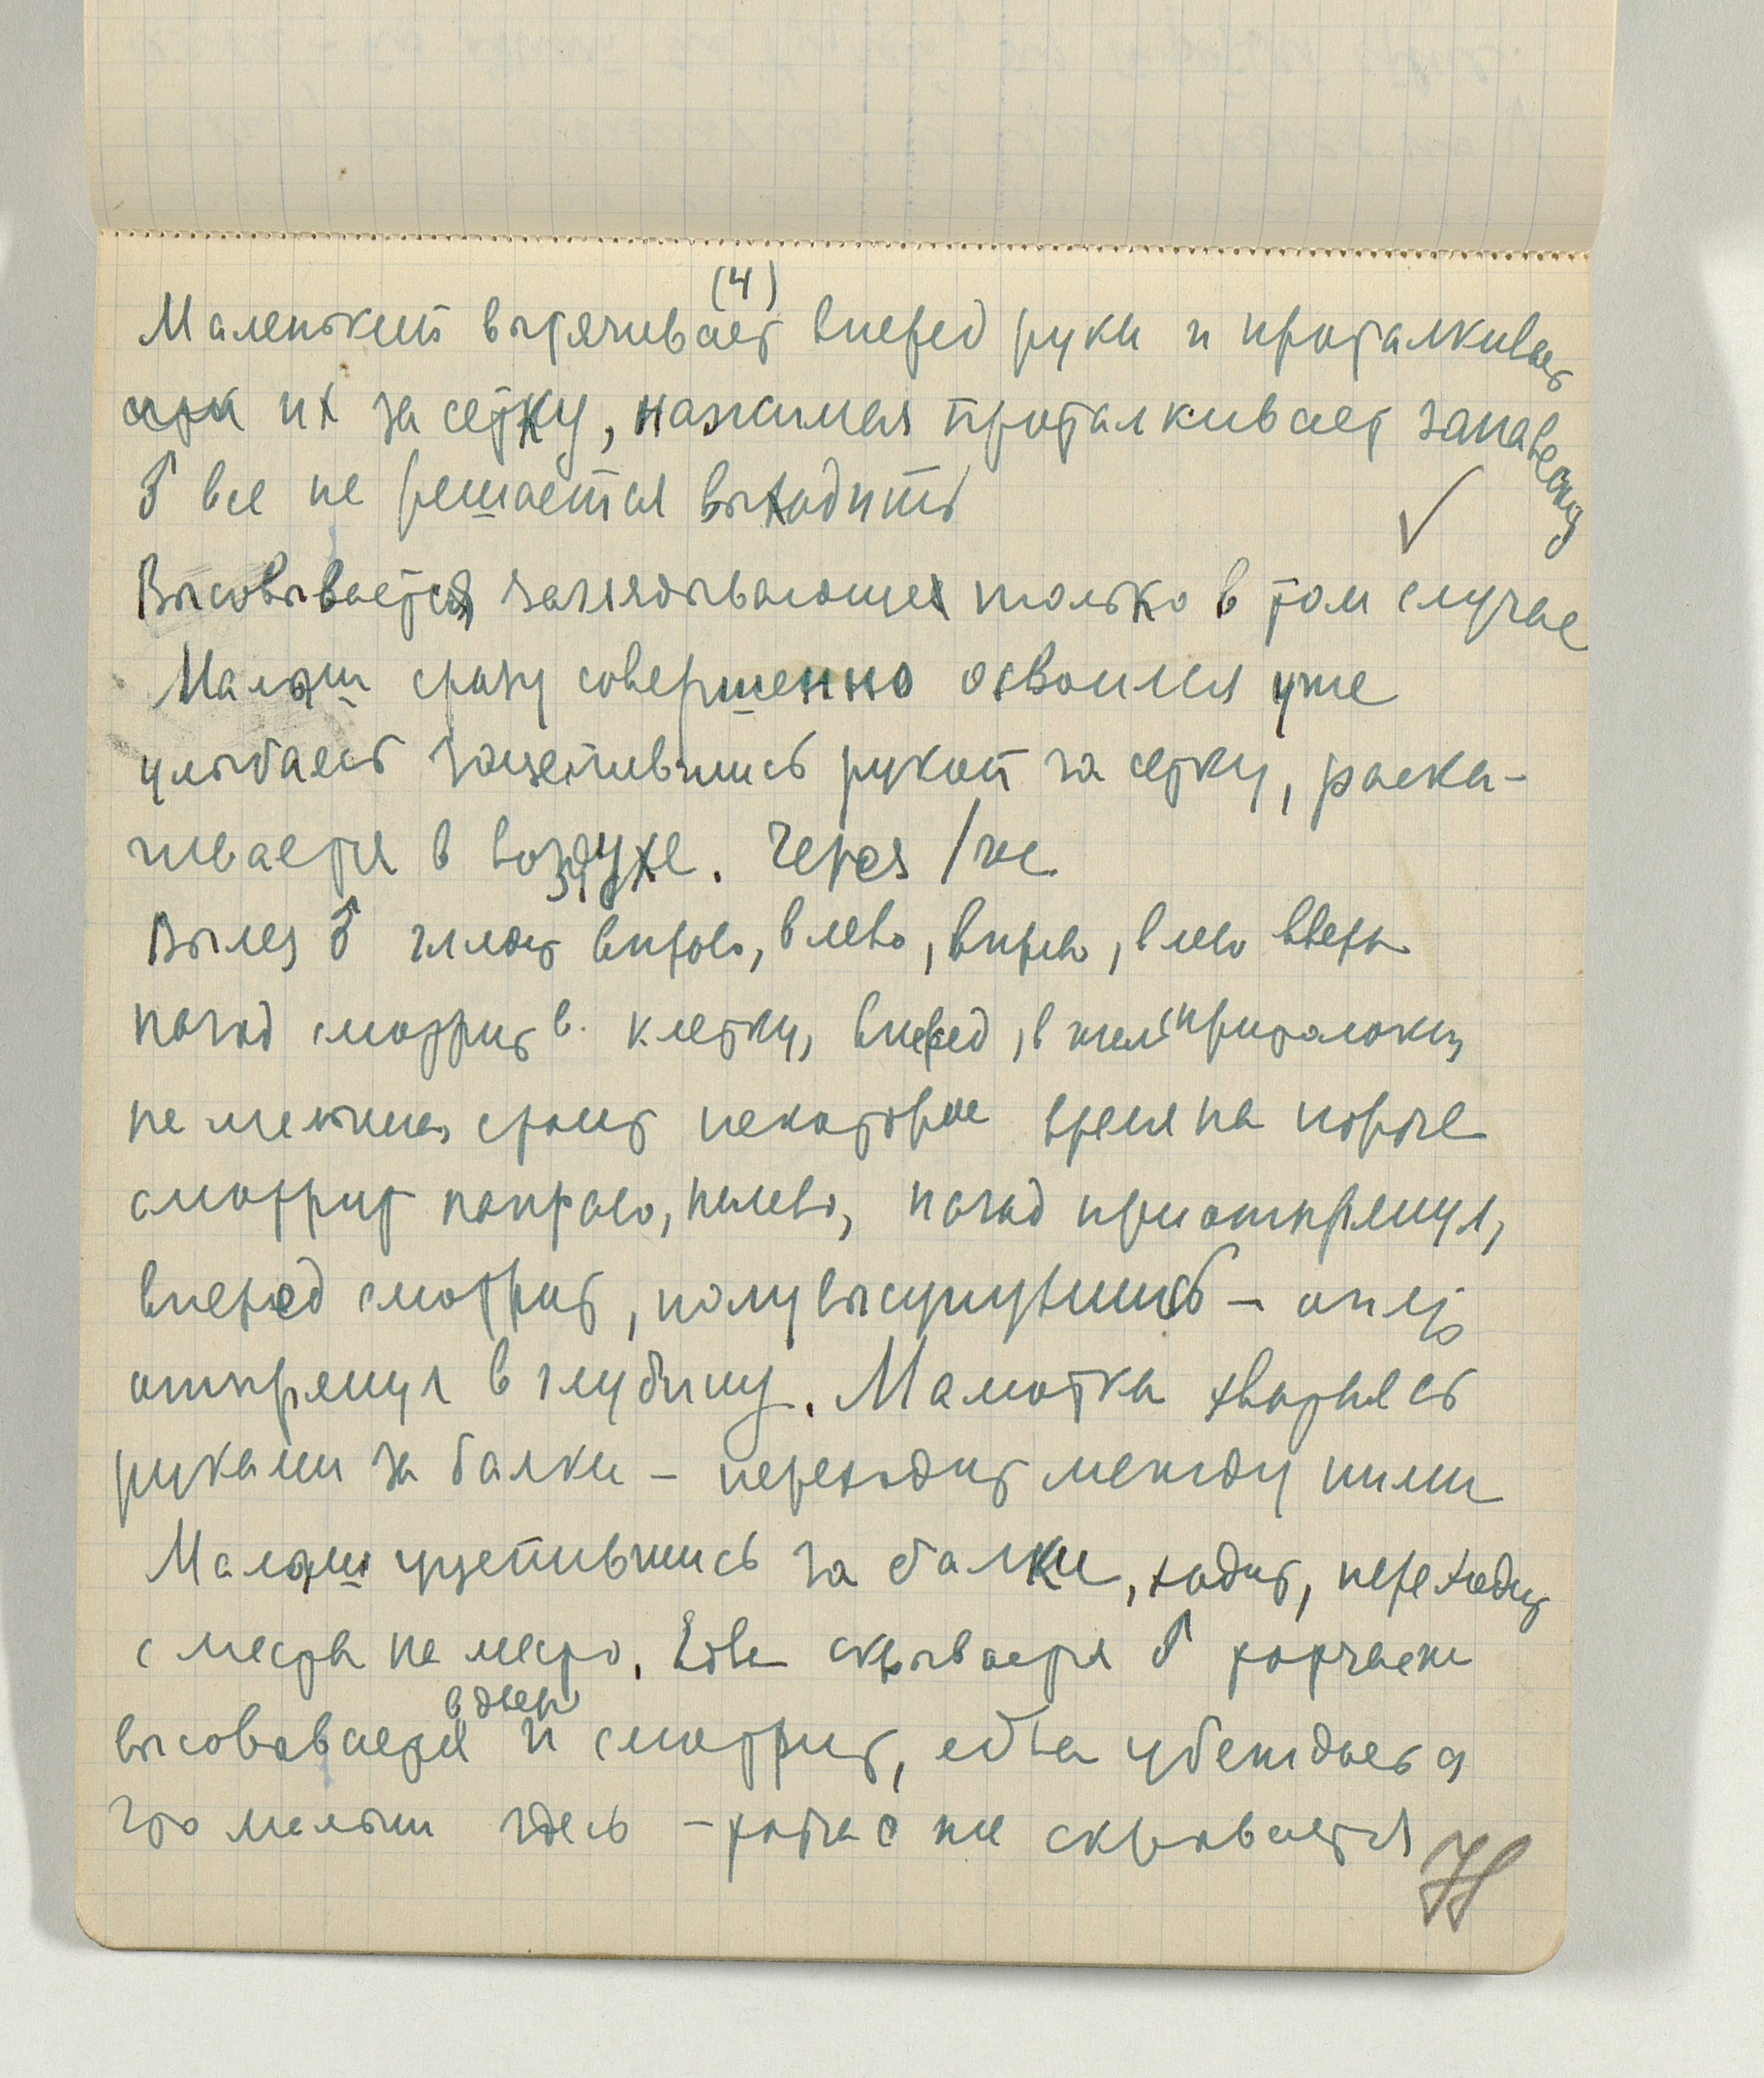 (4)
Маленький вытягивает вперед руки и проталкивает
их за сетку, нажимая проталкивает занавеску
♂ все не решается выходить
Высовывается, заглядывающе только в том случае
Малыш сразу совершенно освоился уже
улыбаясь зацепившись рукой за сетку, раска-
чивается в воздухе. Через
Вылез ♂ глядит вправо, влево, вправо, влево вверх
назад смотрит в клетку, вперед, в
стоит некоторое время на пороге
смотрит направо, налево, назад приотпрянул,
вперед смотрит, полувысунувшись – опять
отпрянул в глубину. Мамотка хватаясь
руками за балки – переходит между ними
Малыш уцепившись за балки, ходит, переходит
с места на место. Едва скрывается ♂ тотчас же
высовывается в дверь и смотрит, едва убеждается
что малыш здесь – тотчас же скрывается